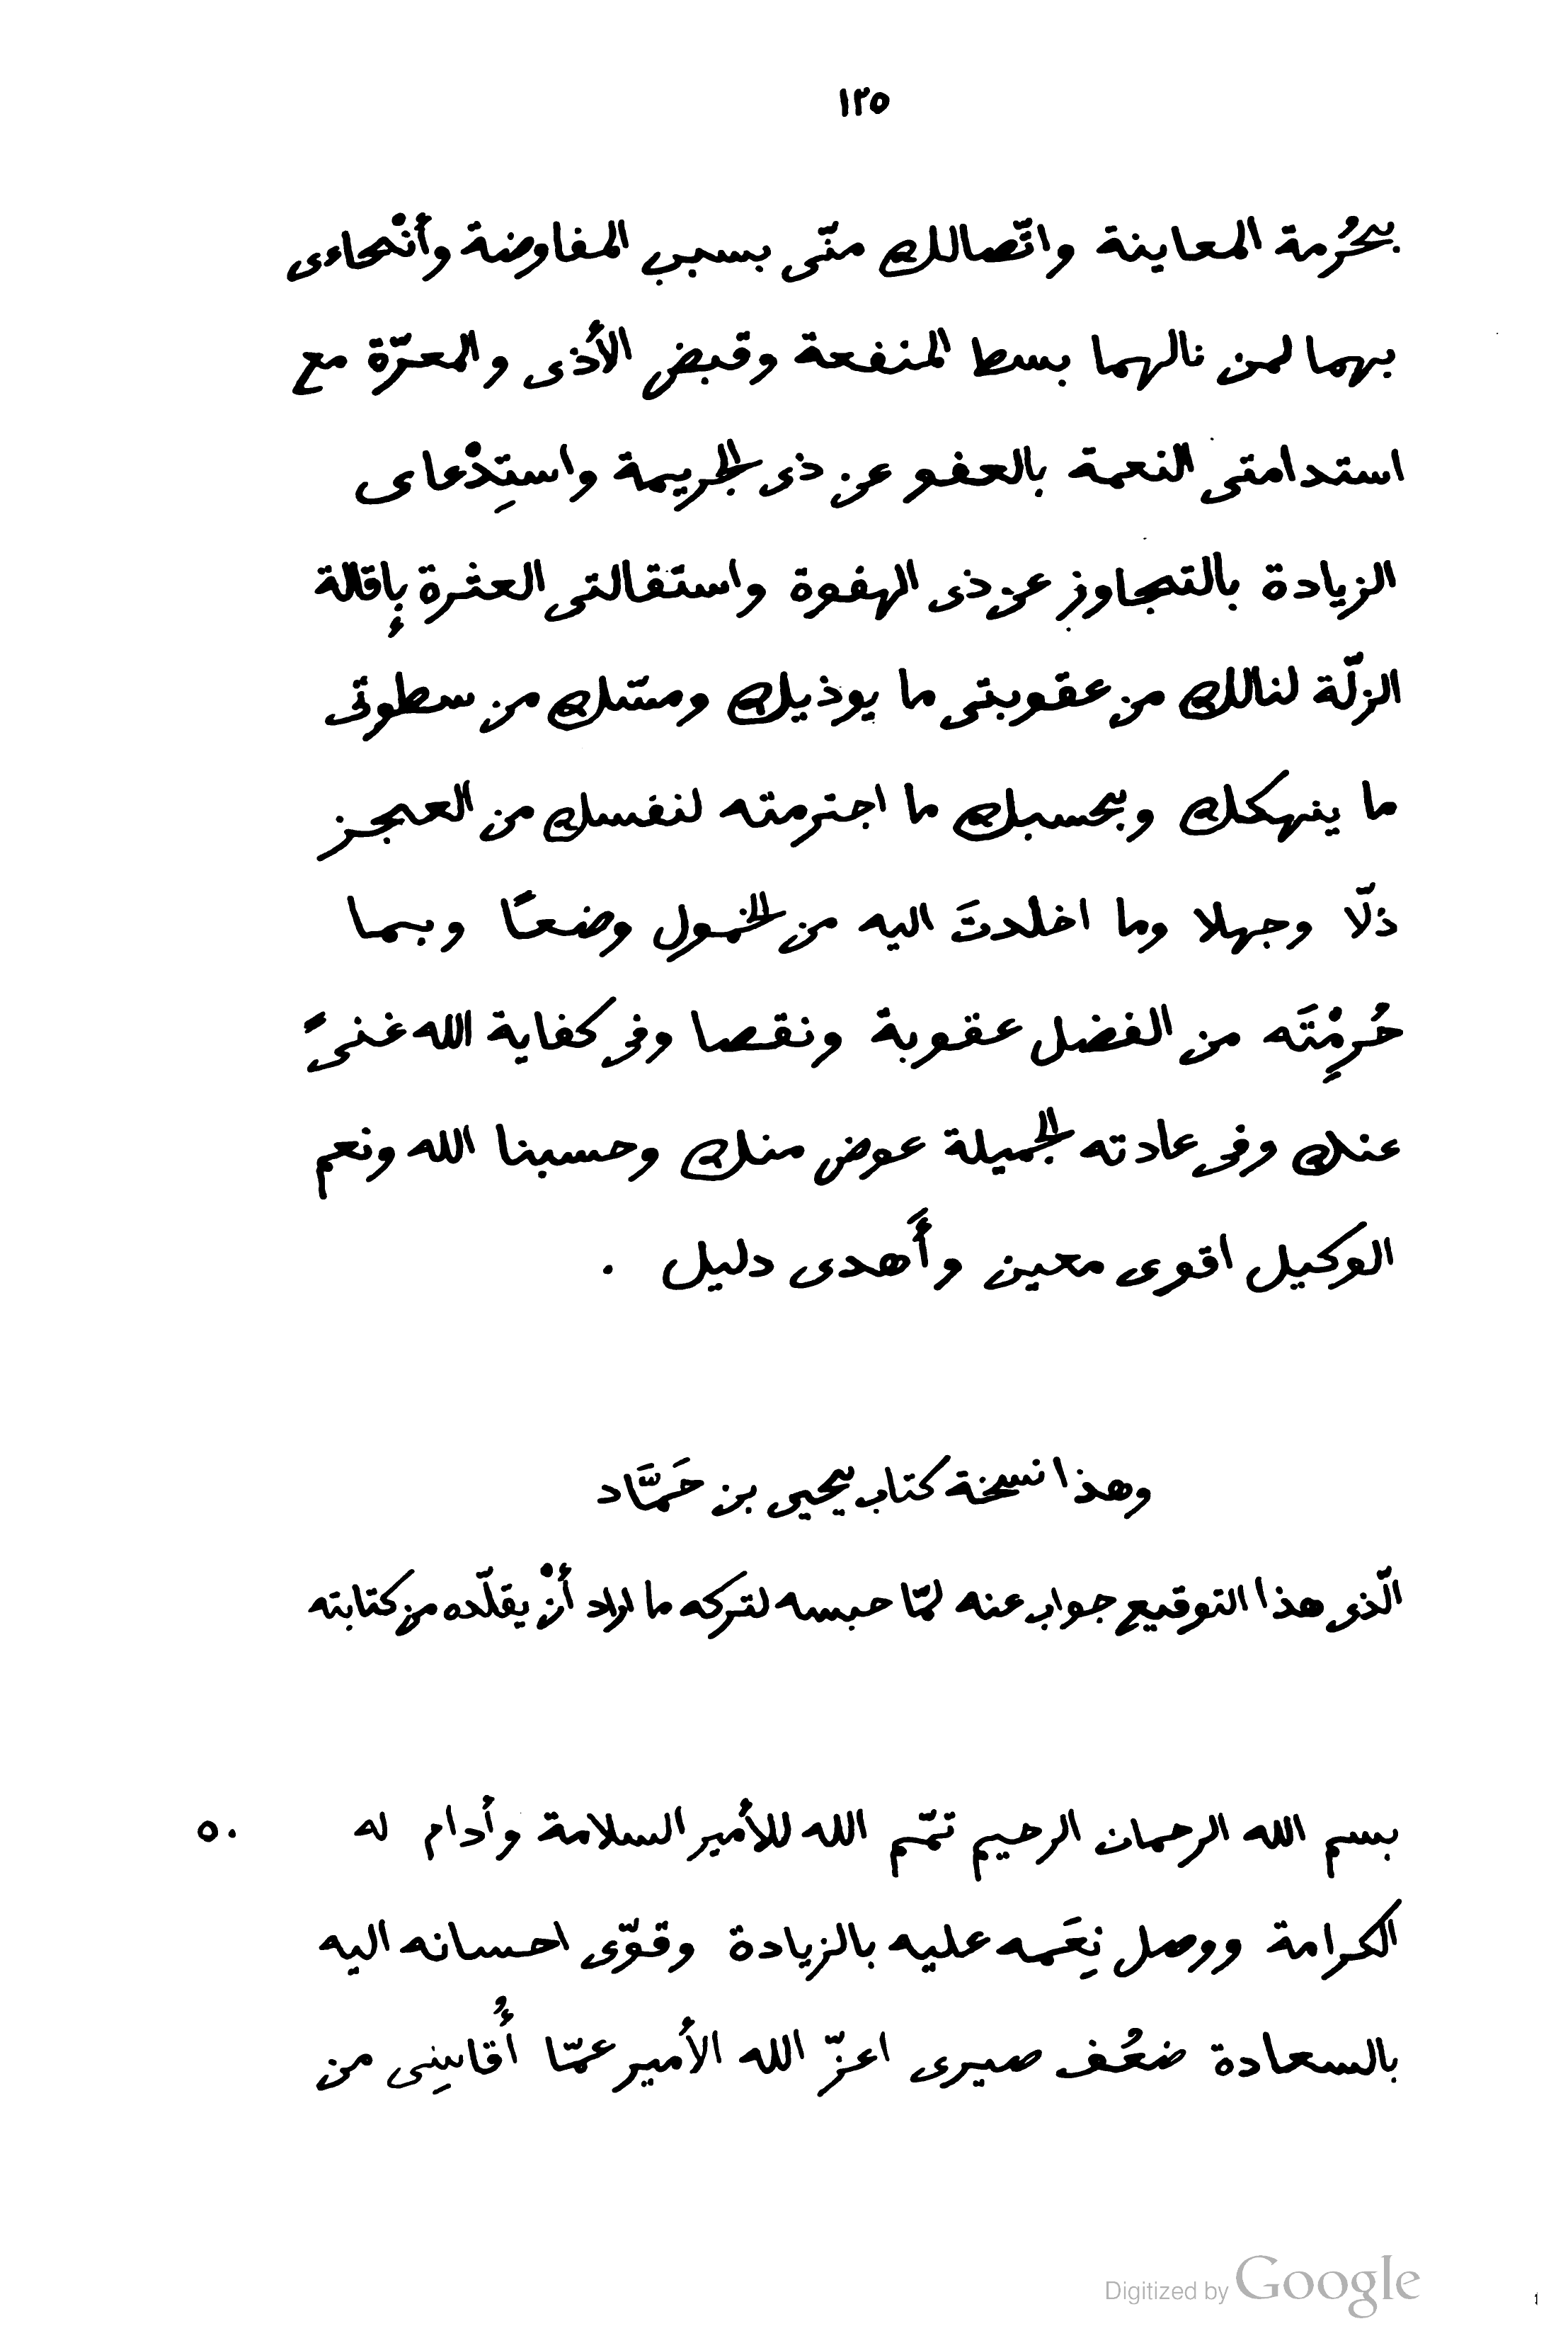 ١٢٥
بحُرمة المعاينة واتّصالك منّى بسبب المفاوضة وأنْحاءى
بهما لمن نالهما بسط المنفعة وقبض الأذى والمعرّة مع
استدامتى النعمة بالعفو عن ذى الجريمة واستِدْعاى
الزيادة بالتجاوز عن ذى الهفوة واستقالتى العثرة بإقالة
الزلّة لنالك من عقوبتى ما يوذيك ومسّك من سطوتى
ما ينهكك وبحسبك ما اجترمته لنفسك من العجز
ذلّا وجهلا وما اخلدتَ اليه من الخمول وضعًا وبما
حُرِمْتَه من الفضل عقوبة ونقصا وفى كفاية الله غنىً
عنك وفى عادته الجميلة عوض منك وحسبنا الله ونعم
الوكيل اقوى معين وأَهدى دليل .
وهذا نسخة كتاب يحيى بن حَمَّاد
الّذى هذا التوقيع جواب عنه لمّا حبسه لتركه ما اراد أنْ يقلّده من كتابته
بسم الله الرحمان الرحيم تمّم الله للأمير السلامة وأدام له ٥٠
الكرامة ووصل نِعَمه عليه بالزيادة وقوّى احسانه اليه
بالسعادة ضعُف صبرى اعزّ الله الأمير عمّا أُقاسِى من
Digitized by Google